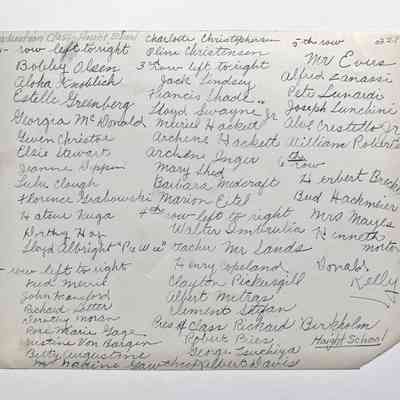 Graduation Class - Haight School
row left to right
Bobby Olsen
Aloha Knoblich
Estelle Greenberg
Georgia McDonald
Gwen Christoe
Elsie Stewart
Jeanne Sippin
Lulu Clough
Florence Grabowski
Hatsue Kuga
Dorthy Hay
Lloyd Albright "Pee Wee"
row left to right
Fred Merrie
John Hansford
Richard Letter
Dorothy Moran
Rose Marie Gage
Justine Von Bargen
Betty Augustine
Nadine Gawthrop
Charlotte Christophersen
Oline Christensen
3rd row left to right
Jack Lindsey
Francis Shade
Lloyd Swayne Jr
Muriel Hackett
Archene Hackett
Archene Inger
Mary Shed
Barbara Medcraft
Marion Eitel
4th row left to right
Walter Imbrulia
Teacher Mr Sands
Henry Copeland
Clayton Pickersgill
Albert Mitras
Clement Stefan
Pres of Class Richard Birkholm
Robert Bies
George Tsuchiya
Albert Davis
5th row
Mr Evers
Alfred Lanassi
Pete Lunardi
Joseph Lunchini
Abel Crestello Jr
William Roberts
6th row
Herbert Breck
Bud Hackmeier
Mrs Mayls
Kenneth Morton
Donald Kelly
Haight School